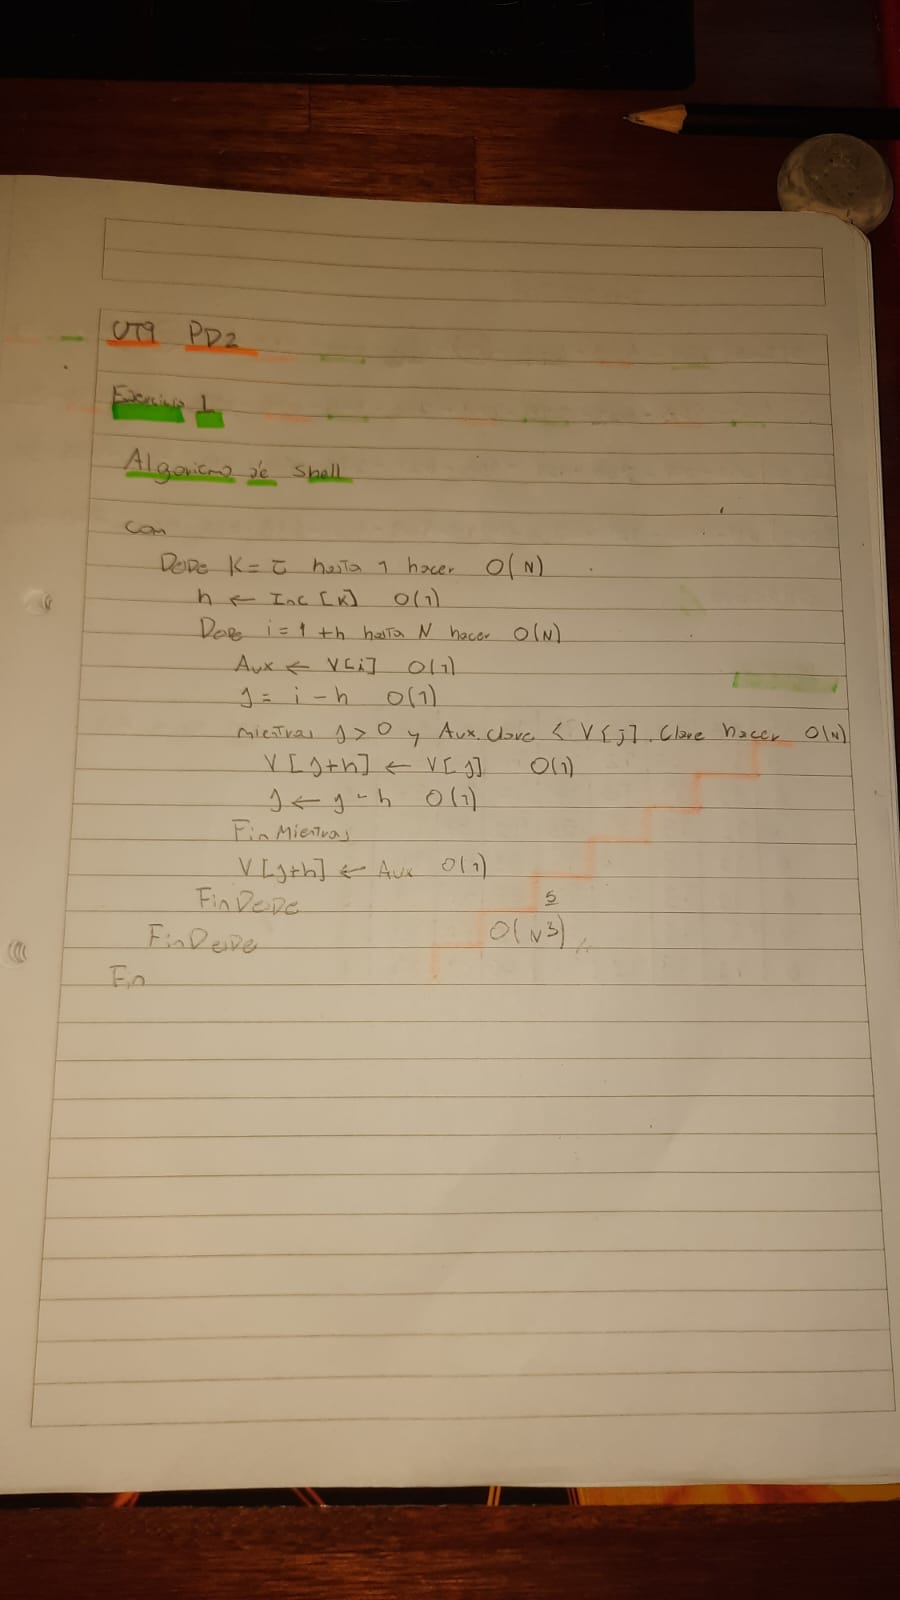 UT9 PD2
Ejercicio 1
Algoritmo de Shell
Com
Desde K = t hasta 1 hacer O(N)
h ← Inc [K] O(1)
Desde i = 1 + h hasta N hacer O(N)
Aux ← V[i] O(1)
J = i - h O(1)
mientras J > 0 y Aux.clave < V[j].Clave hacer O(N)
V[J+h] ← V[J] O(1)
J ← J - h O(1)
Fin Mientras
V[J+h] ← Aux O(1)
Fin Desde
Fin Desde O(N 3)
Fin